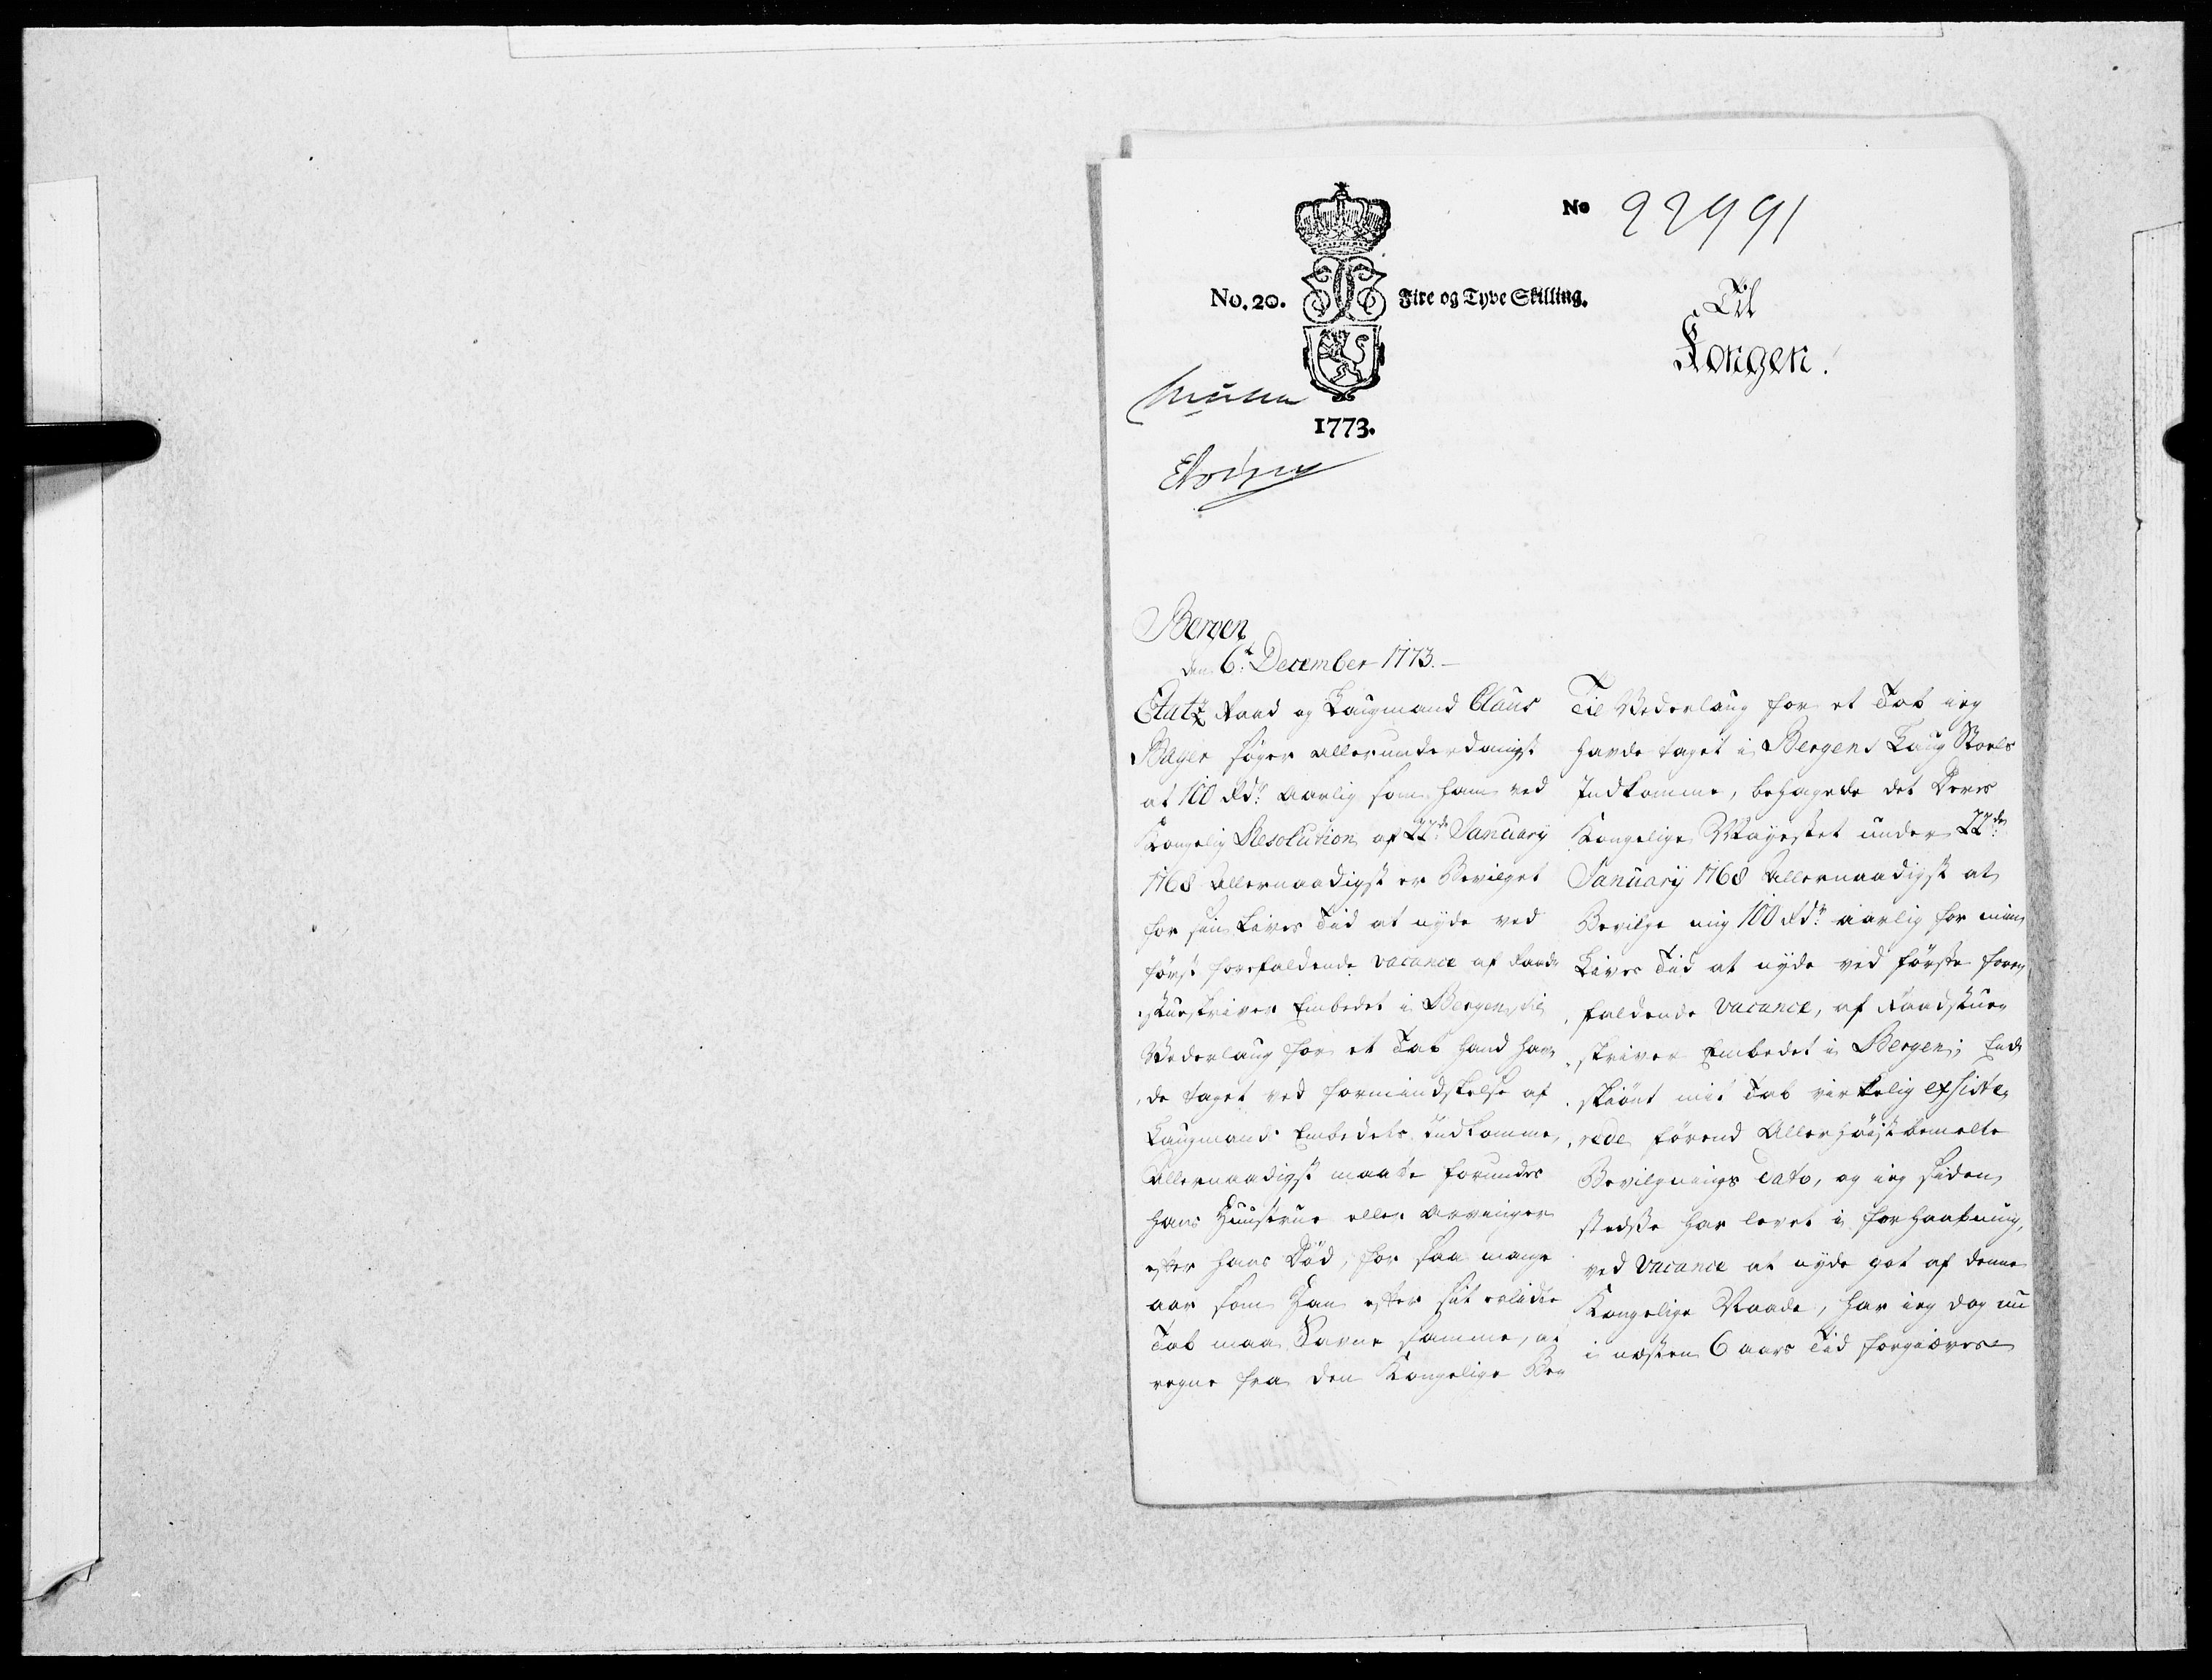 No 22991
No. 20. Fire og Tyve Skilling.
Til
Kongen!
1773.
Bergen
den 6t December 1773.
Etatz Raad og Laugmand Claus
Bager søger allerunderdanigst
at 100 Rdr aarlig som ham ved
Kongelig Resolution af 22de January
1768 Allernaadigst er Bevilget
for sin Lives Tid at nyde ved
først forefaldende vacance af Raad-
stueskriver Embedet i Bergen, til
Wederlaug for et Tab hand hav-
de taget ved formindskelse af
Laugmands Embedets Indkomme,
Allernaadigst maatte forundes
hans Huustrue eller Arvinger
efter hans Død, for saa mange
aar som Han efter sit erlidte
Tab maa Savne samme, at
regne fra den Kongelige Be-
Til Wederlaug for et Tab ieg
havde taget i Bergens Laug Stoels
Indkomme, behagede det Deres
Kongelige Mayestet under 22de
January 1768 Allernaadigst at
Bevilge mig 100 Rdr aarlig for min
Lives Tid at nyde ved første fore-
faldende vacance, af Raadstue-
skriver Embedet i Bergen; End-
skiønt mit Tab virkelig exsiste-
rede førend Allerhøistbemelte
Bevilgnings dato, og ieg siden
stedse har levet i forhaabning,
ved vacance at nyde got af denne
Kongelige Naade, har ieg dog nu
i næsten 6 aars Tid forgiæves